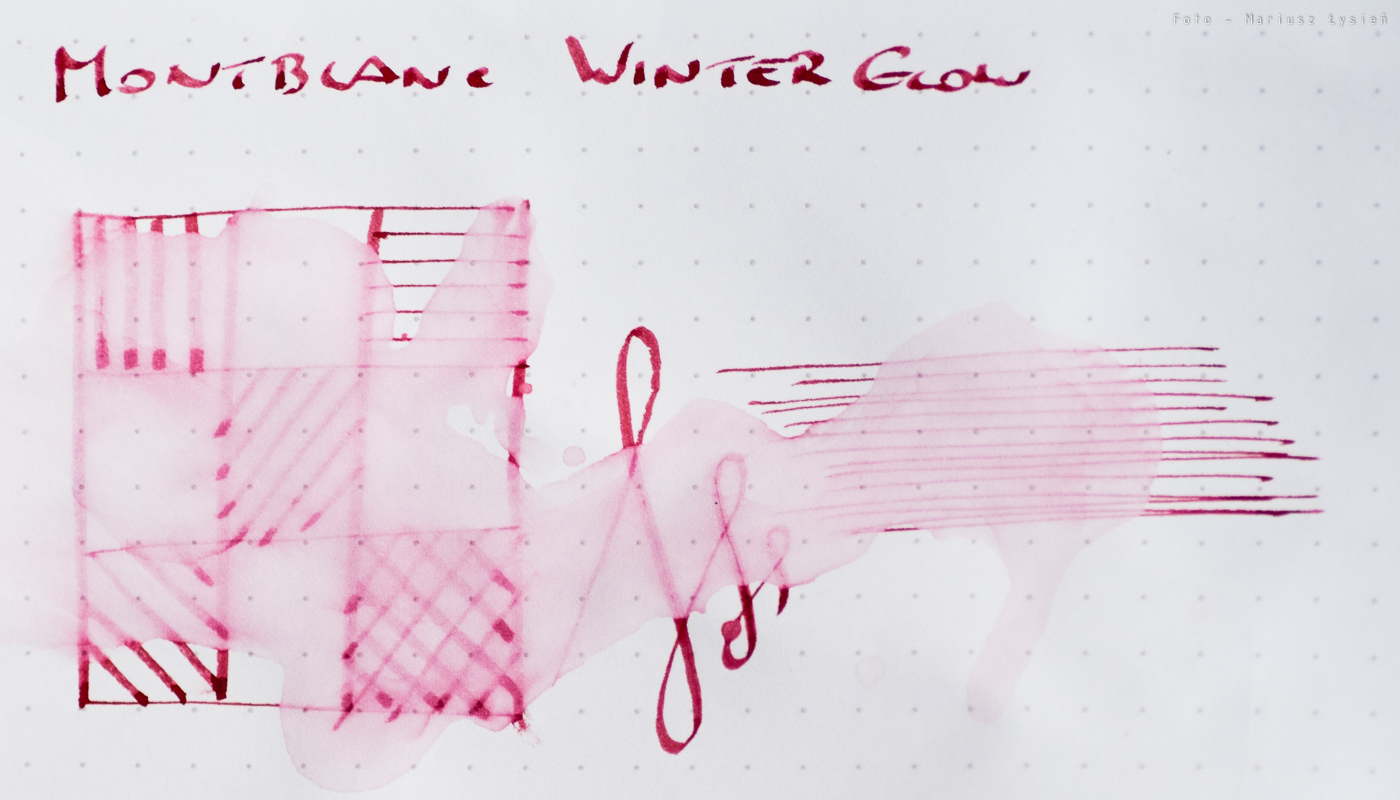 Foto - Mariusz Łysień
MONTBLANC WINTER GLOW